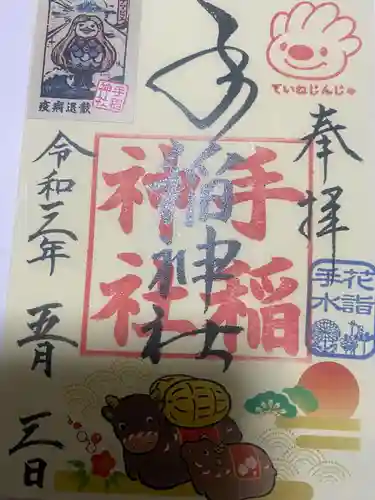 奉拝
ていねじんじゃ
花詣
手水
手稲神社
手稲
神社
手稲
神社
疫病退散
令和三年
五月
三日